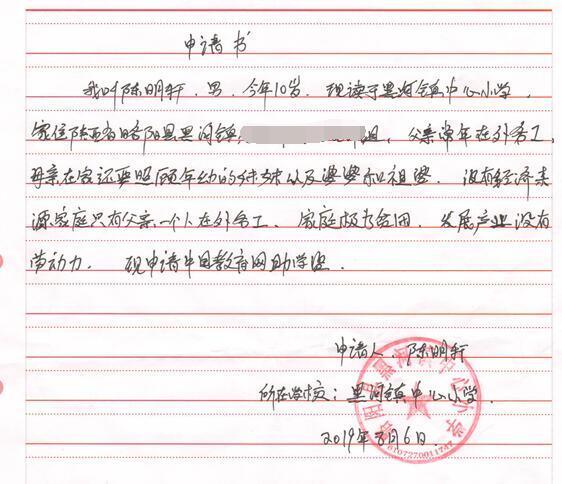 申请书
我叫陈明轩，男，今年10岁，现读于黑河镇中心小学，
家住陕西省略阳县黑河镇 组，父亲常年在外务工，
母亲在家还要照顾年幼的妹妹以及婆婆和祖婆。没有经济来
源家庭只有父亲一个人在外务工、家庭极为贫困，发展产业没有
劳动力。现申请中国教育网助学
申请人：陈明轩
所在学校：黑河镇中心小学。
2019年3月6日
略阳县黑河镇中心小学
6107270011747